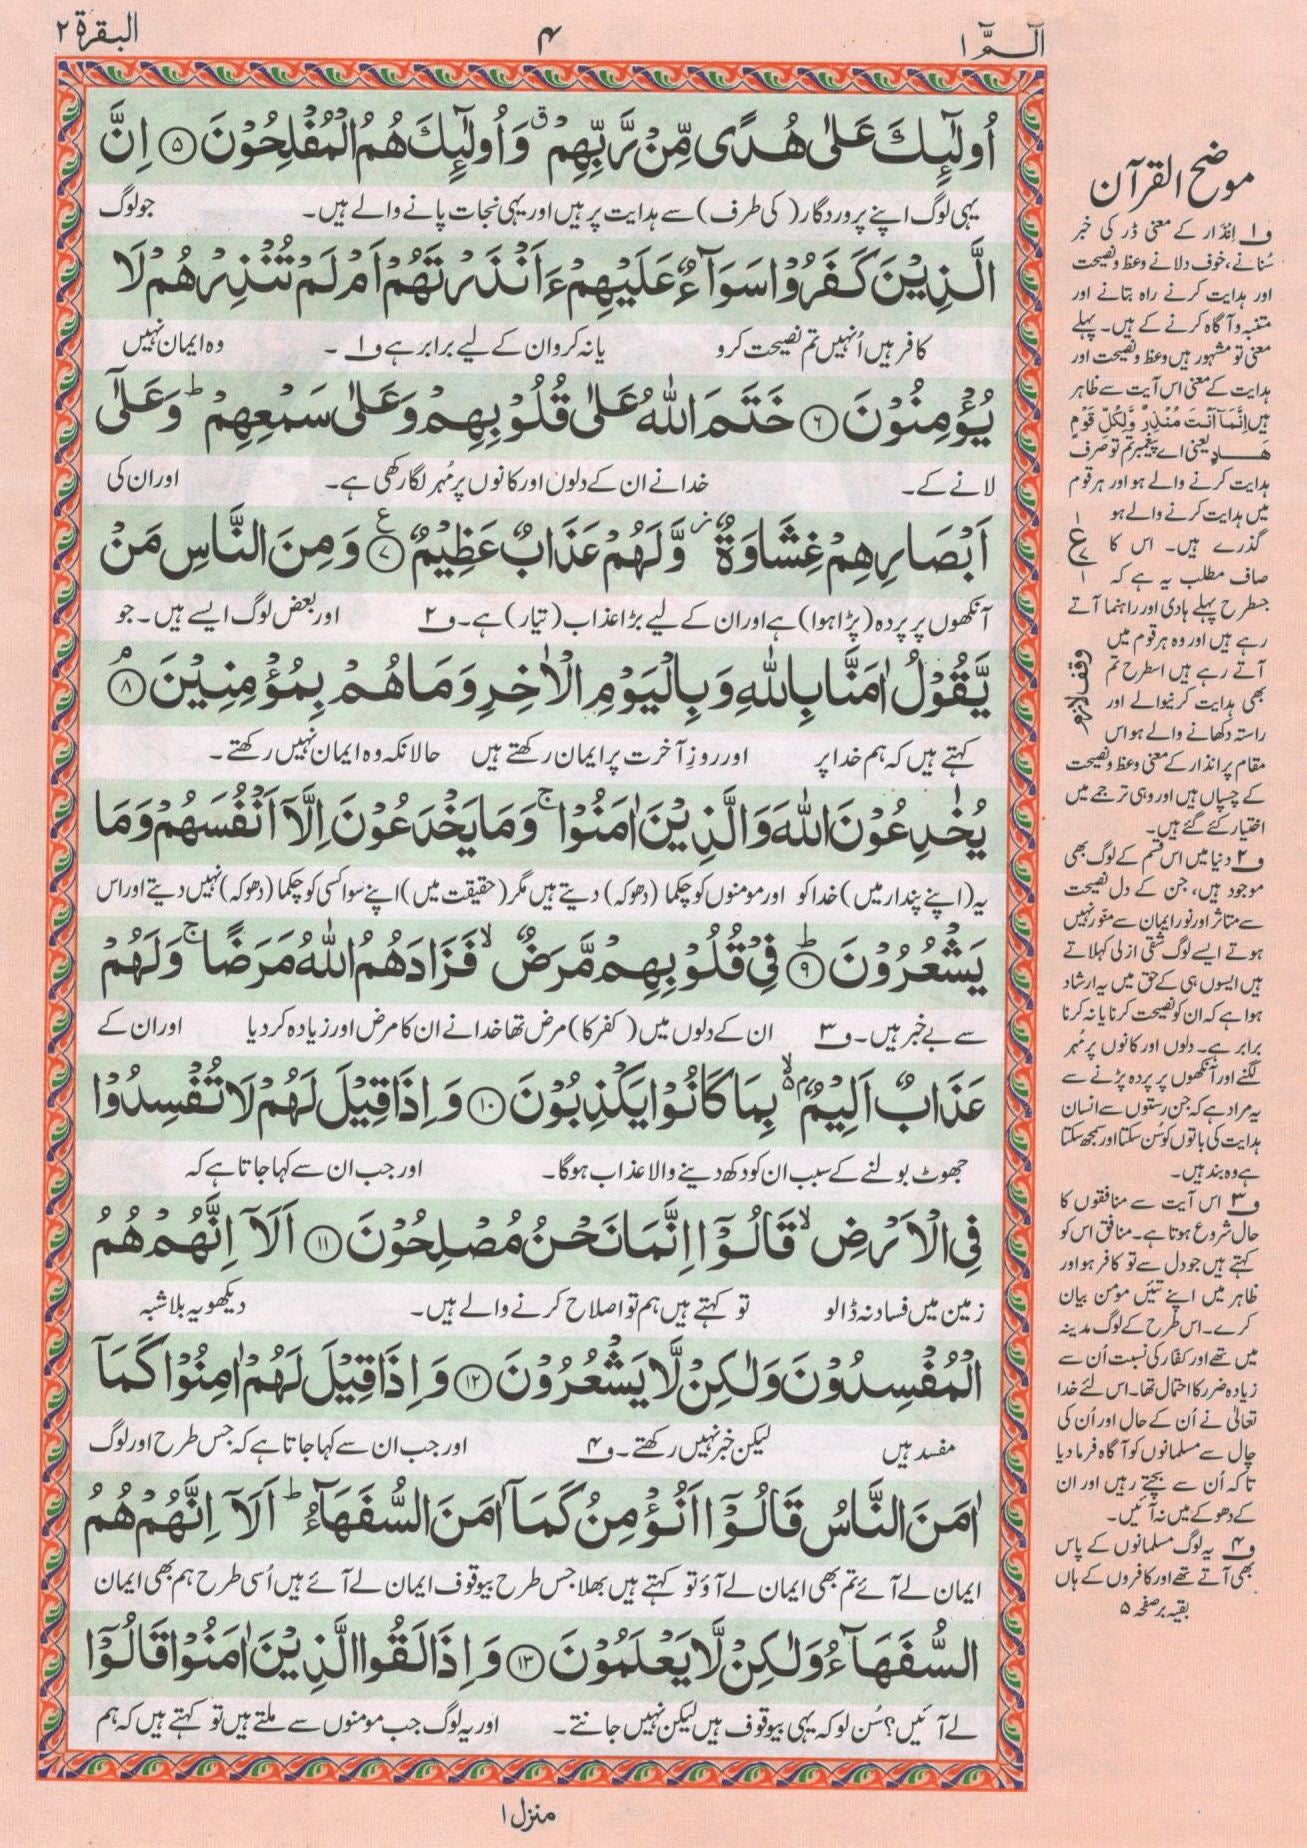 الٓمّٓ ۱
۴
البقرة ۲
اُولٰٓئِكَ عَلٰى هُدًى مِّنْ رَّبِّهِمْ ۗ وَاُولٰٓئِكَ هُمُ الْمُفْلِحُوْنَ ۵ اِنَّ
یہی لوگ اپنے پروردگار (کی طرف) سے ہدایت پر ہیں اور یہی نجات پانے والے ہیں۔ جو لوگ
الَّذِيْنَ كَفَرُوْا سَوَآءٌ عَلَيْهِمْ ءَاَنْذَرْتَهُمْ اَمْ لَمْ تُنْذِرْهُمْ لَا
کافر ہیں اُنہیں تم نصیحت کرو یا نہ کرو ان کے لیے برابر ہے ف۱۔ وہ ایمان نہیں
يُؤْمِنُوْنَ ۶ خَتَمَ اللّٰهُ عَلٰى قُلُوْبِهِمْ وَعَلٰى سَمْعِهِمْ ؕ وَعَلٰٓى
لانے کے۔ خدا نے ان کے دلوں اور کانوں پر مُہر لگا رکھی ہے۔ اور ان کی
اَبْصَارِهِمْ غِشَاوَةٌ ز وَّلَهُمْ عَذَابٌ عَظِيْمٌ ۷ ع وَمِنَ النَّاسِ مَنْ
آنکھوں پر پردہ (پڑا ہوا) ہے اور ان کے لیے بڑا عذاب (تیار) ہے۔ ف۲ اور بعض لوگ ایسے ہیں۔ جو
يَّقُوْلُ اٰمَنَّا بِاللّٰهِ وَبِالْيَوْمِ الْاٰخِرِ وَمَا هُمْ بِمُؤْمِنِيْنَ ۘ ۸
کہتے ہیں کہ ہم خدا پر اور روزِ آخرت پر ایمان رکھتے ہیں حالانکہ وہ ایمان نہیں رکھتے۔
يُخٰدِعُوْنَ اللّٰهَ وَالَّذِيْنَ اٰمَنُوْا ۚ وَمَا يَخْدَعُوْنَ اِلَّآ اَنْفُسَهُمْ وَمَا
یہ (اپنے پندار میں) خدا کو اور مومنوں کو چکما (دھوکہ) دیتے ہیں مگر (حقیقت میں) اپنے سوا کسی کو چکما (دھوکہ) نہیں دیتے اور اس
يَشْعُرُوْنَ ؕ ۹ فِيْ قُلُوْبِهِمْ مَّرَضٌ ۙ فَزَادَهُمُ اللّٰهُ مَرَضًا ۚ وَلَهُمْ
سے بے خبر ہیں۔ ف۳ ان کے دلوں میں (کفر کا) مرض تھا خدا نے ان کا مرض اور زیادہ کر دیا اور ان کے
عَذَابٌ اَلِيْمٌ ۢ ۙ بِمَا كَانُوْا يَكْذِبُوْنَ ۱۰ وَاِذَا قِيْلَ لَهُمْ لَا تُفْسِدُوْا
جھوٹ بولنے کے سبب ان کو دکھ دینے والا عذاب ہوگا۔ اور جب ان سے کہا جاتا ہے کہ
فِي الْاَرْضِ ۙ قَالُوْٓا اِنَّمَا نَحْنُ مُصْلِحُوْنَ ۱۱ اَلَآ اِنَّهُمْ هُمُ
زمین میں فساد نہ ڈالو تو کہتے ہیں ہم تو اصلاح کرنے والے ہیں۔ دیکھو یہ بلاشبہ
الْمُفْسِدُوْنَ وَلٰكِنْ لَّا يَشْعُرُوْنَ ۱۲ وَاِذَا قِيْلَ لَهُمْ اٰمِنُوْا كَمَآ
مفسد ہیں لیکن خبر نہیں رکھتے۔ ف۴ اور جب ان سے کہا جاتا ہے کہ جس طرح اور لوگ
اٰمَنَ النَّاسُ قَالُوْٓا اَنُؤْمِنُ كَمَآ اٰمَنَ السُّفَهَآءُ ؕ اَلَآ اِنَّهُمْ هُمُ
ایمان لے آئے تم بھی ایمان لے آؤ تو کہتے ہیں بھلا جس طرح بیوقوف ایمان لے آئے ہیں اُسی طرح ہم بھی ایمان
السُّفَهَآءُ وَلٰكِنْ لَّا يَعْلَمُوْنَ ۱۳ وَاِذَا لَقُوا الَّذِيْنَ اٰمَنُوْا قَالُوْٓا
لے آئیں؟ سُن لو کہ یہی بیوقوف ہیں لیکن نہیں جانتے۔ اور یہ لوگ جب مومنوں سے ملتے ہیں تو کہتے ہیں کہ ہم
موضح القرآن
ف۱ اِنذار کے معنی ڈر کی خبر
سُنانے، خوف دلانے وعظ و نصیحت
اور ہدایت کرنے راہ بتانے اور
متنبہ و آگاہ کرنے کے ہیں۔ پہلے
معنی تو مشہور ہیں وعظ و نصیحت اور
ہدایت کے معنی اس آیت سے ظاہر
ہیں اِنَّمَآ اَنْتَ مُنْذِرٌ وَّلِكُلِّ قَوْمٍ
هَادٍ یعنی اے پیغمبر تم تو صرف
ہدایت کرنے والے ہو اور ہر قوم
میں ہدایت کرنے والے ہو
گذرے ہیں۔ اس کا
صاف مطلب یہ ہے کہ
جسطرح پہلے ہادی اور راہنما آتے
رہے ہیں اور وہ ہر قوم میں
آتے رہے ہیں اسطرح تم
بھی ہدایت کرنیوالے اور
راستہ دکھانے والے ہو اس
مقام پر انذار کے معنی وعظ و نصیحت
کے چسپاں ہیں اور وہی ترجمے میں
اختیار کئے گئے ہیں۔
ف۲ دنیا میں اس قسم کے لوگ بھی
موجود ہیں، جن کے دل نصیحت
سے متاثر اور نور ایمان سے منوّر نہیں
ہوتے ایسے لوگ شقی ازلی کہلاتے
ہیں ایسوں ہی کے حق میں یہ ارشاد
ہوا ہے کہ ان کو نصیحت کرنا یا نہ کرنا
برابر ہے۔ دلوں اور کانوں پر مُہر
لگنے اور آنکھوں پر پردہ پڑنے سے
یہ مراد ہے کہ جن رستوں سے انسان
ہدایت کی باتوں کو سُن سکتا اور سمجھ سکتا
ہے وہ بند ہیں۔
ف۳ اس آیت سے منافقوں کا
حال شروع ہوتا ہے۔ منافق اس کو
کہتے ہیں جو دل سے تو کافر ہو اور
ظاہر میں اپنے تئیں مومن بیان
کرے۔ اس طرح کے لوگ مدینہ
میں تھے اور کفّار کی نسبت اُن سے
زیادہ ضرر کا احتمال تھا۔ اس لئے خدا
تعالیٰ نے اُن کے حال اور اُن کی
چال سے مسلمانوں کو آگاہ فرما دیا
تاکہ اُن سے بچتے رہیں اور ان
کے دھوکے میں نہ آئیں۔
ف۴ یہ لوگ مسلمانوں کے پاس
بھی آتے تھے اور کافروں کے ہاں
بقیہ بر صفحہ ۵
۱
ع
۷
۱
وقف لازم
منزل ۱